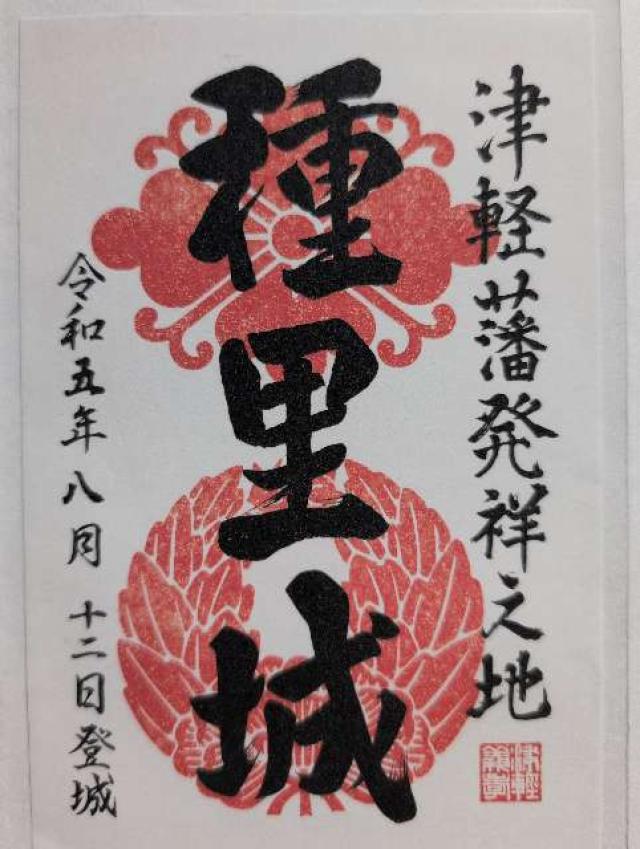 津軽藩発祥之地
種里城
令和五年八月十二日登城